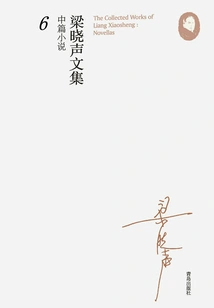 The Collected Works of
Liang Xiaosheng:
Novellas
梁晓声文集
中篇小说
6
梁晓声
青岛出版社